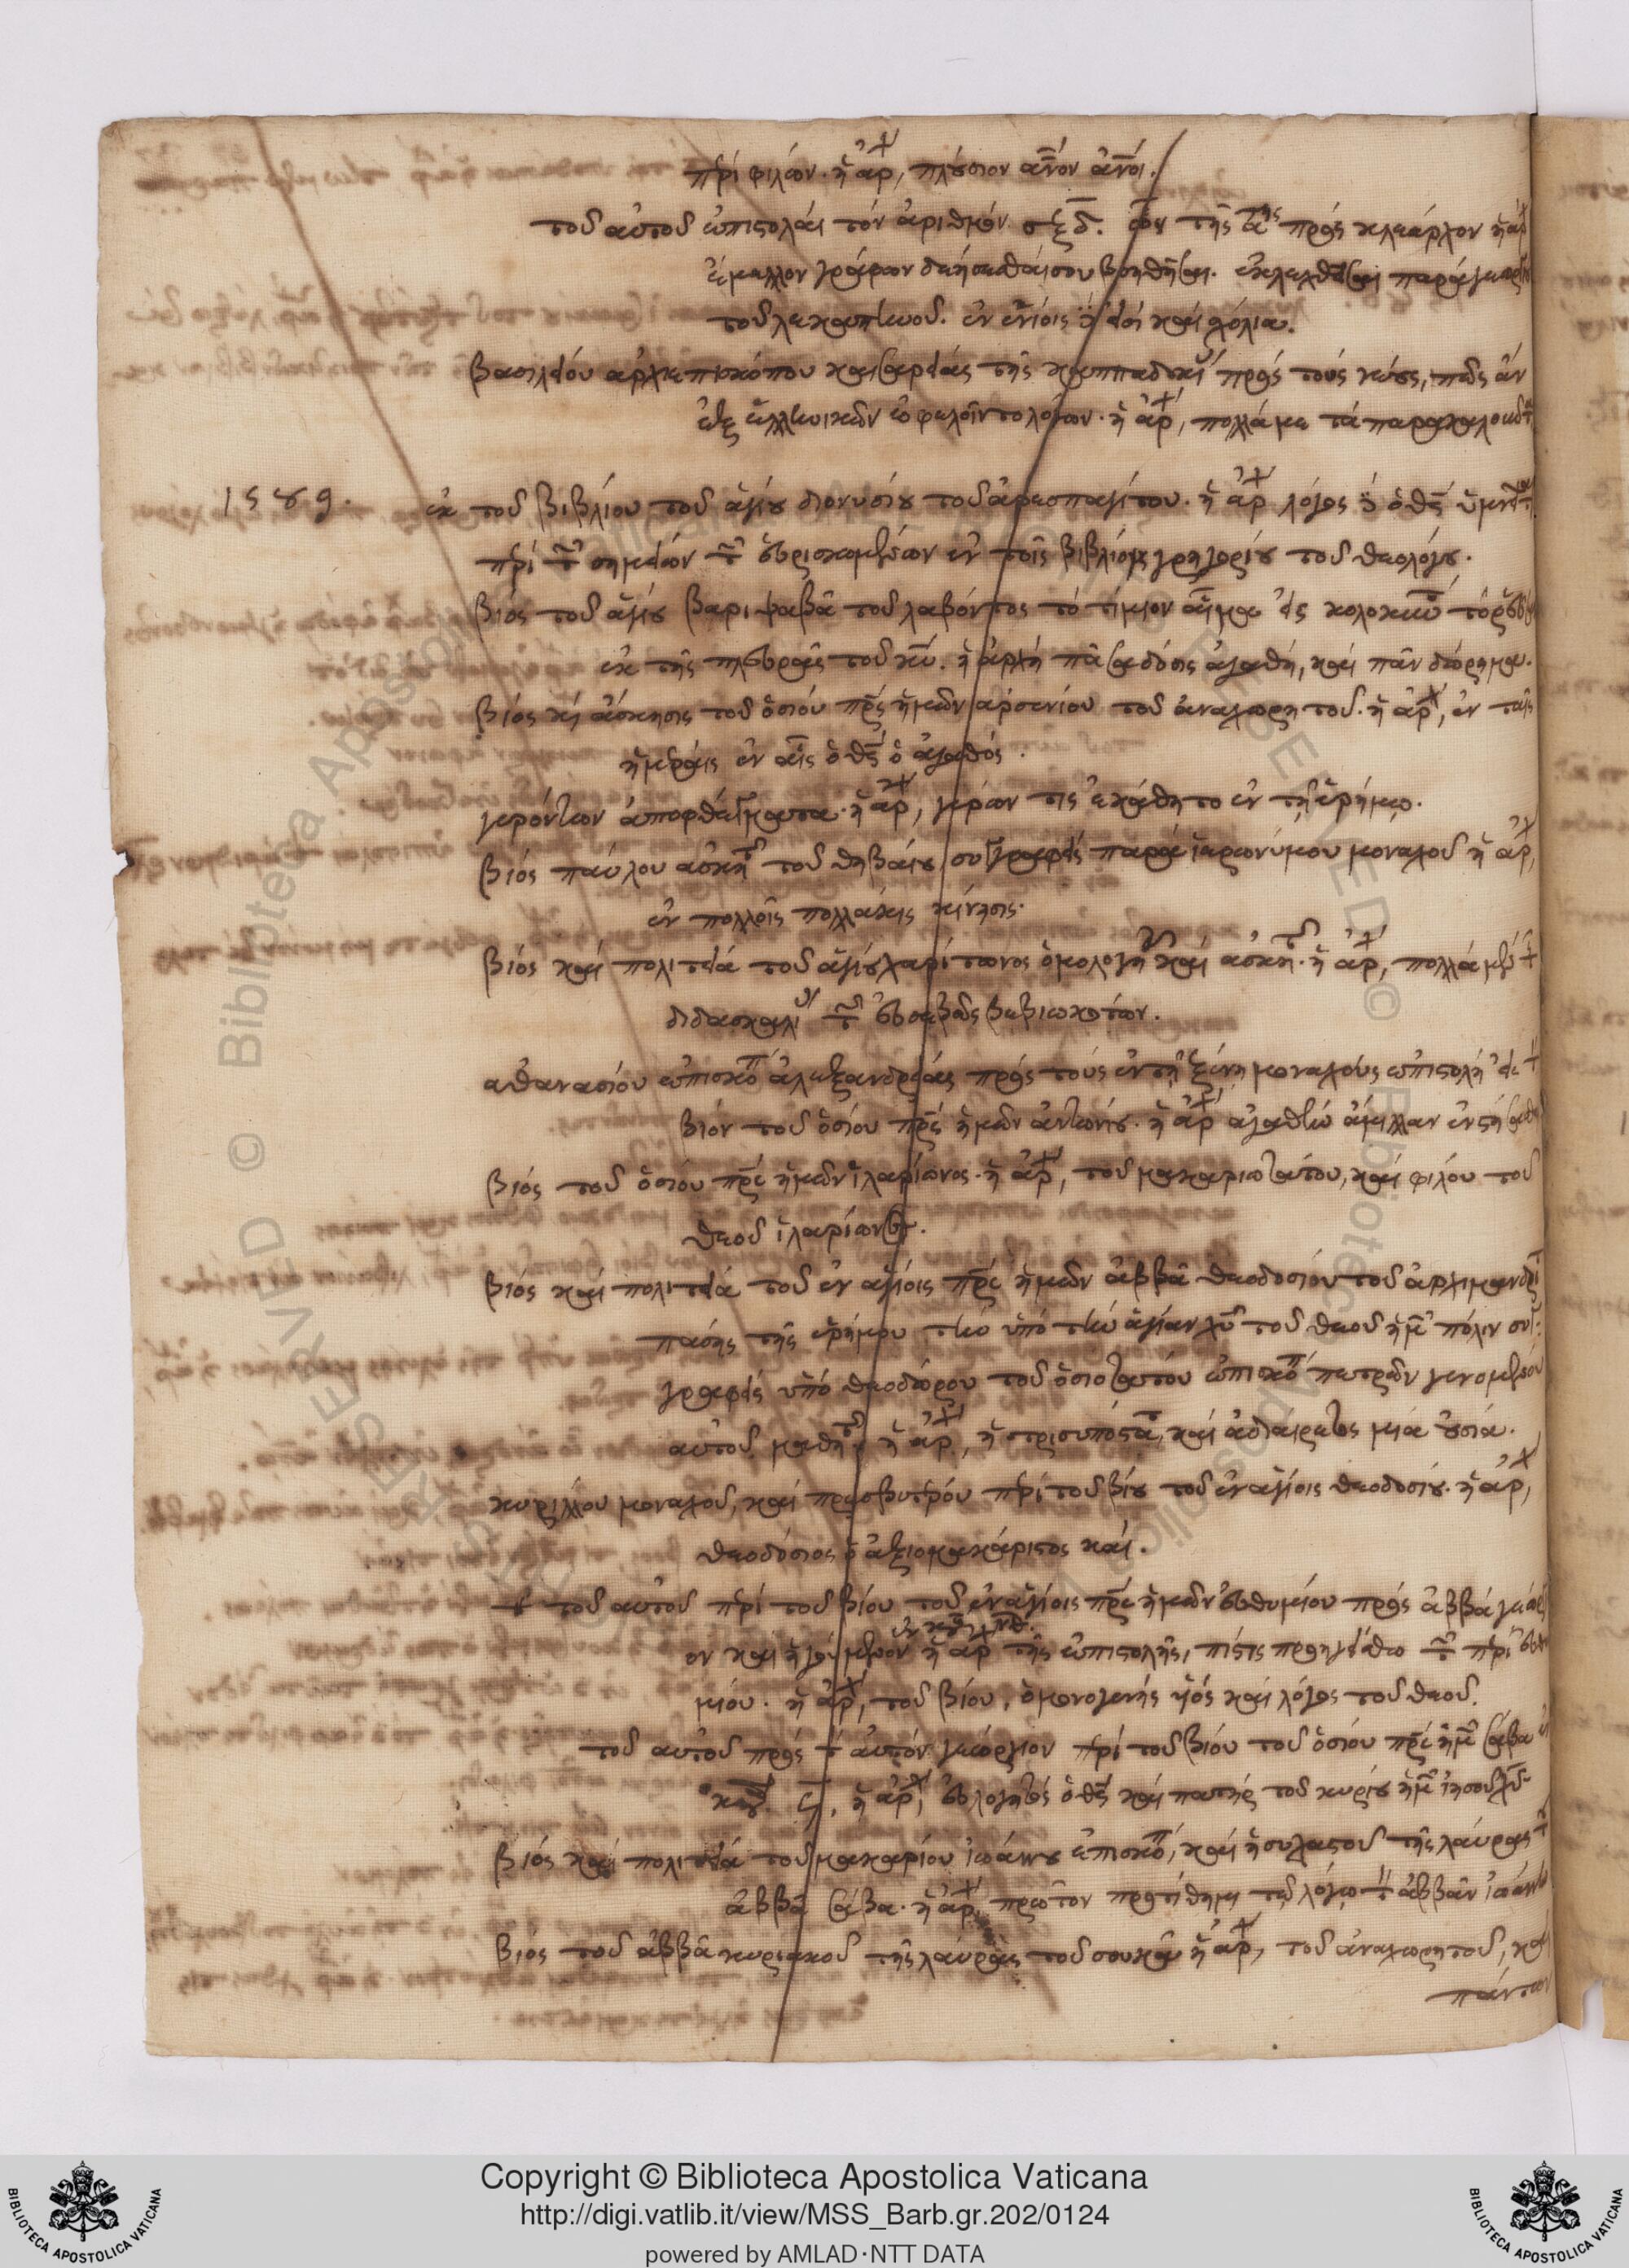 πρὶ φιλῶν· ἡ ἀρχ, πλούσιον ἀνον ἀνοι.
τοῦ αὐτοῦ ἐπιστολαὶ τὸν ἀριθμὸν σξδ. τῆς πρὸς κλέαρχον ἡ ἀρχ
ἔμελλον γράφων βοηθῆσαι.
τοῦ λεκαπηνοῦ. ἐν ἐνίοις εἰσὶ καὶ σχόλια.
βασιλείου ἀρχιεπισκόπου καισαρείας τῆς καππαδοκί πρὸς τοὺς νέους, πῶς ἂν
ἐξ ἑλληνικῶν ὠφελοῖντο λόγων· ἡ ἀρχ, πολλά με τὰ παρακαλοῦντ
1589. ἐκ τοῦ βιβλίου τοῦ ἁγίου διονυσίου τοῦ ἀρεοπαγίτου· ἡ ἀρχ λόγος ὁ θς
πρὶ τ σημείων τ εὑρισκομένων ἐν τοῖς βιβλίοις γρηγορίου τοῦ θεολόγου.
βίος τοῦ ἁγίου βαριψαβᾶ τοῦ λαβόντος τὸ τίμιον αἷμα
ἐκ τῆς πλευρᾶς τοῦ κυ. ἡ ἀρχὴ πᾶσα δόσις ἀγαθὴ, καὶ πᾶν δώρημα.
βίος κὶ ἄσκησις τοῦ ὁσίου πρς ἡμῶν ἀρσενίου τοῦ ἀναχωρητοῦ· ἡ ἀρχ, ἐν ταῖς
ἡμέραις ἐν αἷς ὁ θς ὁ ἀγαθός.
γερόντων ἀποφθέγματα· ἡ ἀρχ, γέρων τις ἐκάθητο ἐν τῇ ἐρήμῳ.
βίος παύλου ἀσκητ τοῦ θηβαίου συγγραφεὶς παρὰ ἱερωνύμου μοναχοῦ ἡ ἀρχ,
ἐν πολλοῖς πολλάκις κίνησις·
βίος καὶ πολιτεία τοῦ ἁγίου χαρίτωνος ὁμολογητ καὶ ἀσκητ· ἡ ἀρχ, πολλὰ μὲν
διδασκαλί τ εὐσεβῶς βεβιωκότων.
ἀθανασίου ἐπισκοπ ἀλεξανδρείας πρὸς τοὺς ἐν τῇ ξένῃ μοναχοὺς ἐπιστολὴ εἰς τ
βίον τοῦ ὁσίου πρς ἡμῶν ἀντωνίου· ἡ ἀρχ ἀγαθὴν ἅμιλλαν
βίος τοῦ ὁσίου πρς ἡμῶν ἱλαρίωνος· ἡ ἀρχ, τοῦ μακαριωτάτου, καὶ φίλου τοῦ
θεοῦ ἱλαρίωνος.
βίος καὶ πολιτεία τοῦ ἐν ἁγίοις πρς ἡμῶν ἀββᾶ θεοδοσίου τοῦ ἀρχιμανδρί
πάσης τῆς ἐρήμου τῆς ὑπὸ τὴν ἁγίαν χυ τοῦ θεοῦ ἡμ πόλιν συγ
γραφεὶς ὑπὸ θεοδώρου τοῦ ὁσιωτάτου ἐπισκοπ πετρῶν γενομένου
αὐτοῦ μαθητ ἡ ἀρχ, ἡ τρισυπόστατ, καὶ ἀδιαίρετος μία οὐσία.
κυρίλλου μοναχοῦ, καὶ πρεσβυτέρου πρὶ τοῦ βίου τοῦ ἐν ἁγίοις θεοδοσίου· ἡ ἀρχ,
θεοδόσιος ὁ ἀξιομακάριστος καὶ.
τοῦ αὐτοῦ πρὶ τοῦ βίου τοῦ ἐν ἁγίοις πρς ἡμῶν εὐθυμίου πρὸς ἀββᾶ γεώργι
ον καὶ ἡγούμενον ἡ ἀρχ τῆς ἐπιστολῆς, πίστις προηγείσθω τ πρὶ εὐθυ
μίου· ἡ ἀρχ, τοῦ βίου, ὁ μονογενὴς υἱὸς καὶ λόγος τοῦ θεοῦ.
τοῦ αὐτοῦ πρὸς τ αὐτὸν γεώργιον πρὶ τοῦ βίου τοῦ ὁσίου πρς ἡμ σάβα
ἡ ἀρχ, εὐλογητὸς ὁ θς καὶ πατὴρ τοῦ κυρίου ἡμ ἰησοῦ χυ
βίος καὶ πολιτεία τοῦ μακαρίου ἰωάννου ἐπισκοπ, καὶ ἡσυχαστοῦ τῆς λαύρας τ
ἀββᾶ σάβα· ἡ ἀρχ, πρῶτον προτίθημι τῷ λόγῳ τ ἀββᾶν ἰωάννην
βίος τοῦ ἀββᾶ κυριακοῦ τῆς λαύρας τοῦ σουκᾶ ἡ ἀρχ, τοῦ ἀναχωρητοῦ, καὶ
πάντων
Copyright © Biblioteca Apostolica Vaticana
http://digi.vatlib.it/view/MSS_Barb.gr.202/0124
powered by AMLAD·NTT DATA